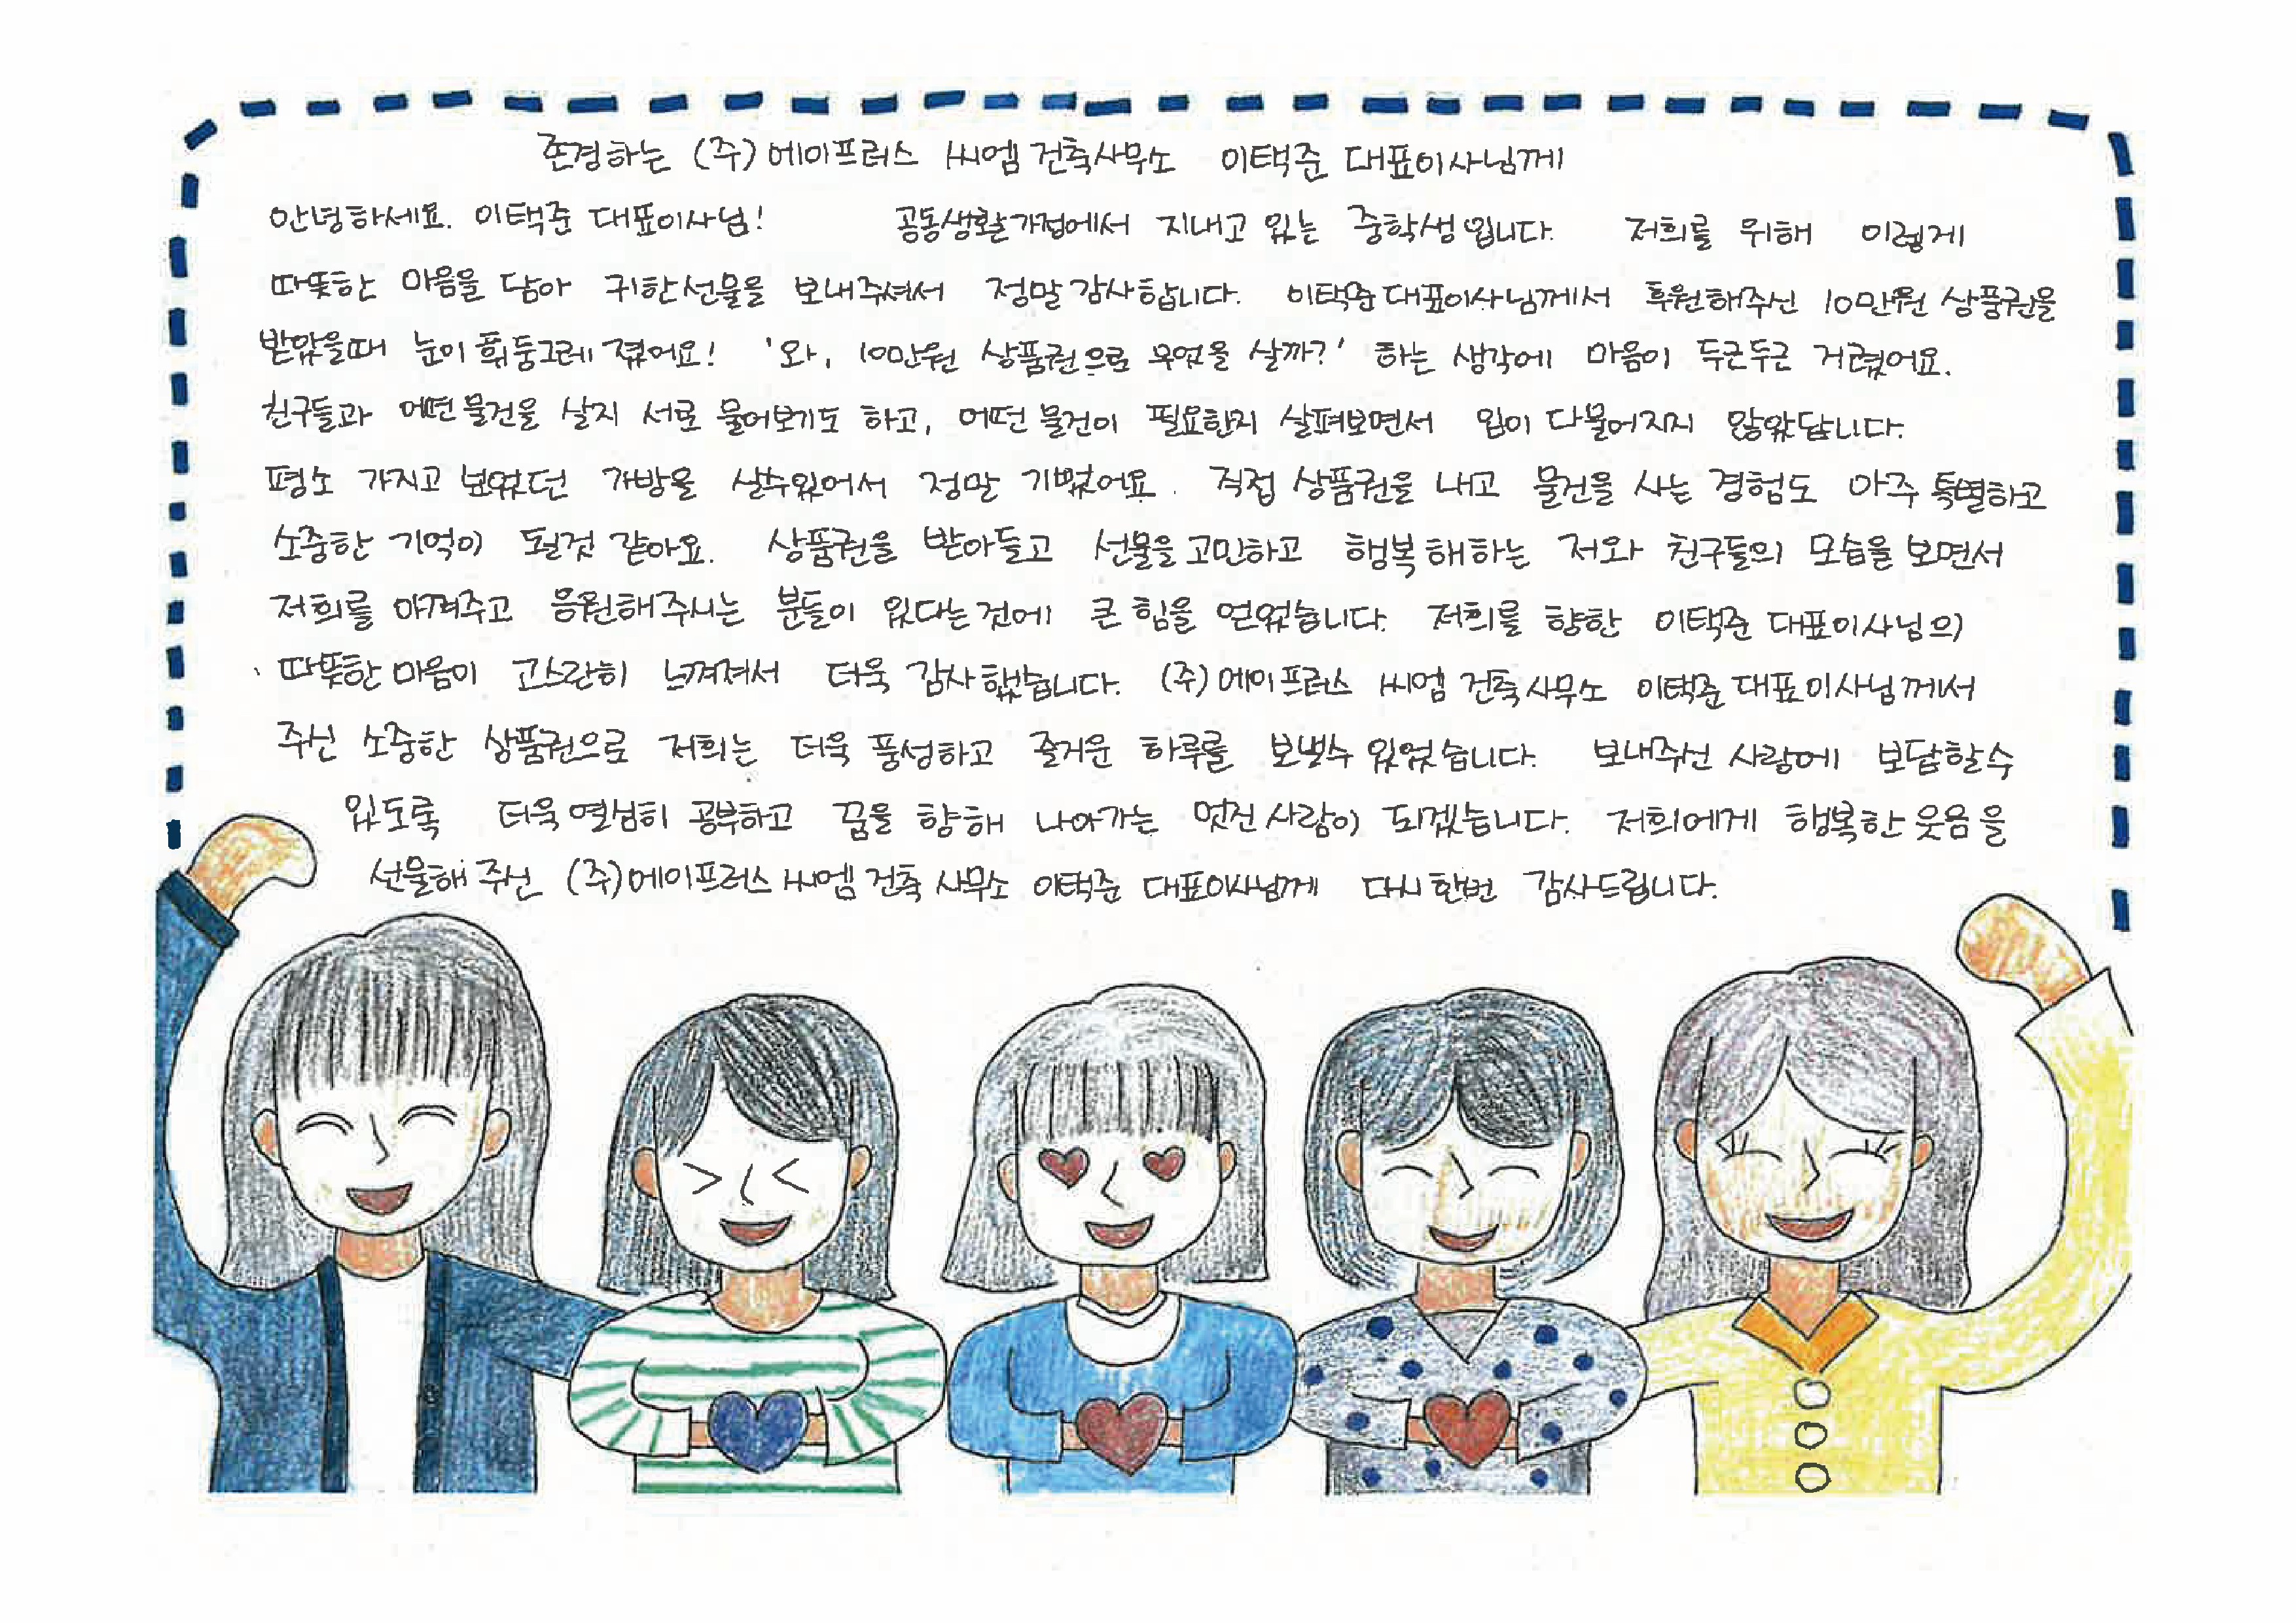 존경하는 (주)에이프러스 씨엠 건축사무소 이택준 대표이사님께
안녕하세요. 이택준 대표이사님! 공동생활가정에서 지내고 있는 중학생입니다. 저희를 위해 이렇게
따뜻한 마음을 담아 귀한선물을 보내주셔서 정말감사합니다. 이택준대표이사님께서 후원해주신 10만원 상품권을
받았을때 눈이 휘둥그레 졌어요! '와, 100만원 상품권으로 무엇을 살까?' 하는 생각에 마음이 두근두근 거렸어요.
친구들과 어떤물건을 살지 서로 물어보기도 하고, 어떤 물건이 필요한지 살펴보면서 입이 다물어지지 않았답니다.
평소 가지고 싶었던 가방을 살수있어서 정말 기뻤어요. 직접 상품권을 내고 물건을 사는 경험도 아주 특별하고
소중한 기억이 될것 같아요. 상품권을 받아들고 선물을고민하고 행복해하는 저와 친구들의 모습을 보면서
저희를 아껴주고 응원해주시는 분들이 있다는것에 큰 힘을 얻었습니다. 저희를 향한 이택준 대표이사님의
따뜻한 마음이 고스란히 느껴져서 더욱 감사했습니다. (주)에이프러스 씨엠 건축사무소 이택준대표이사님께서
주신 소중한 상품권으로 저희는 더욱 풍성하고 즐거운 하루를 보낼수 있었습니다. 보내주신 사랑에 보답할수
있도록 더욱열심히 공부하고 꿈을 향해 나아가는 멋진사람이 되겠습니다. 저희에게 행복한 웃음을
선물해주신 (주)에이프러스 씨엠 건축 사무소 이택준 대표이사님께 다시한번 감사드립니다.